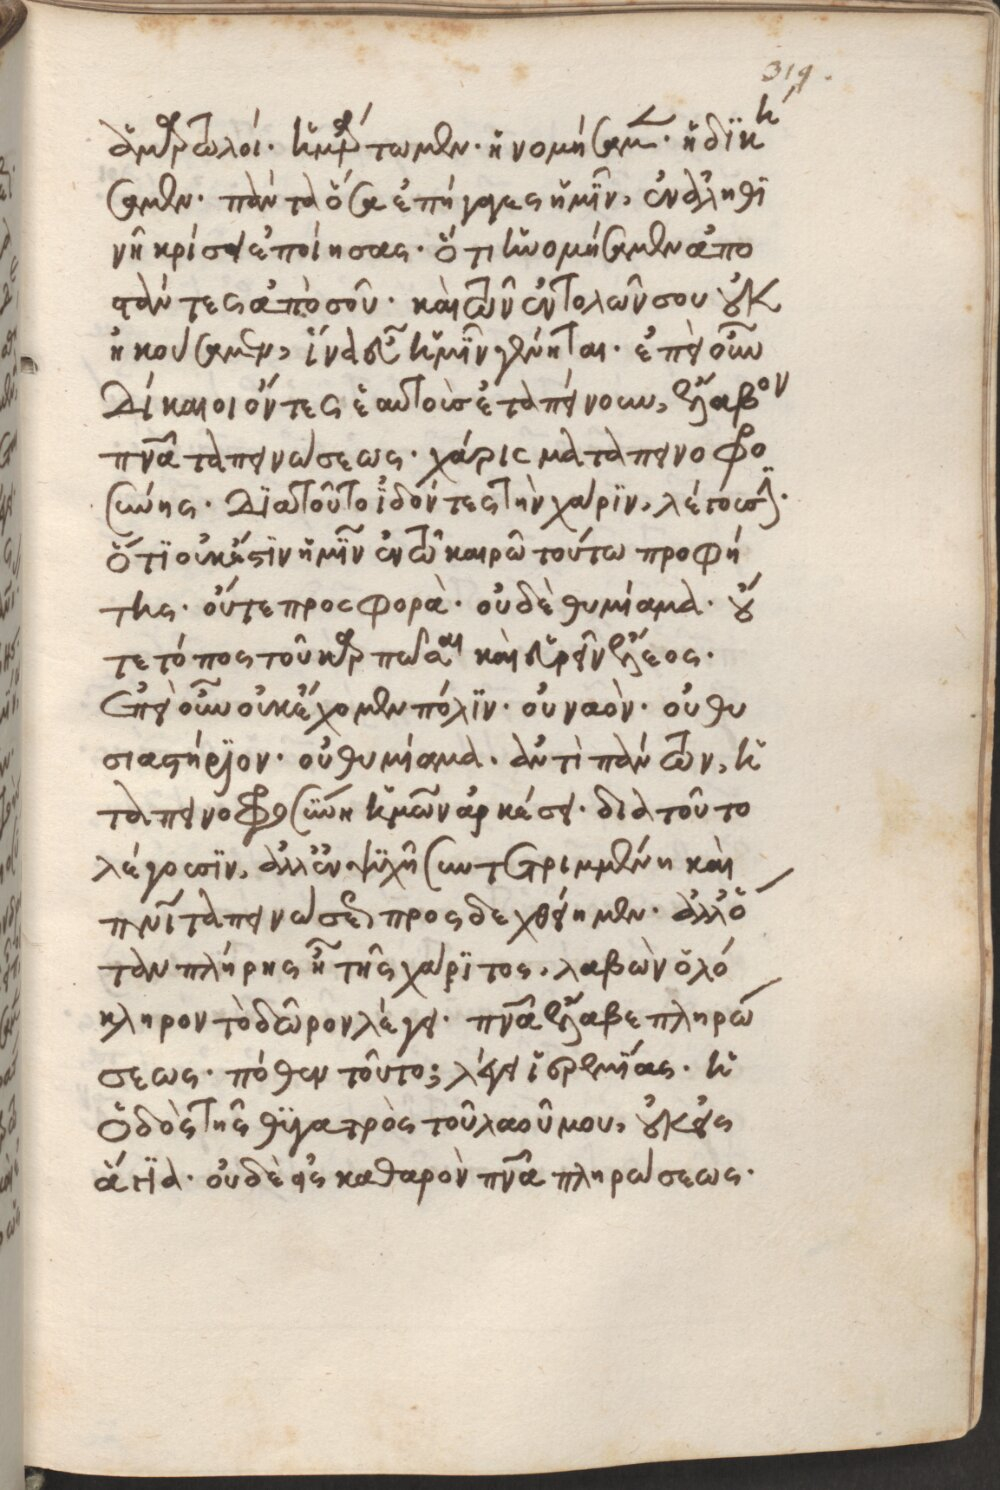 319.
ἁμαρτωλοί. ἡμάρτομεν. ἠνομήσαμεν. ἠδική
σαμεν. πάντα ὅσα ἐπήγαγες ἡμῖν, ἐν ἀληθι
νῇ κρίσει ἐποίησας. ὅτι ἠνομήσαμεν ἀπο
στάντες ἀπὸ σοῦ. καὶ τῶν ἐντολῶν σου οὐκ
ἠκούσαμεν, ἵνα εὖ ἡμῖν γένηται. ἐπεὶ οὖν
Δίκαιοι ὄντες ἑαυτοὺς ἐταπείνουν, ἔλαβον
πνα ταπεινώσεως. χάρισμα ταπεινοφρο
σύνης. Διατοῦτο ἰδόντες τὴν χάριν, λέγουσιν.
Ὅτι οὐκ ἔστιν ἡμῖν ἐν τῶ καιρῶ τούτω προφή
της. οὔτε προσφορὰ. οὐδὲ θυμίαμα. οὔ
τε τόπος τοῦ καρπῶσαι καὶ εὑρεῖν ἔλεος.
Ἐπεὶ οὖν οὐκ ἔχομεν πόλιν. οὐ ναὸν. οὐ θυ
σιαστήριον. οὐ θυμίαμα. ἀντὶ πάντων, ἡ
ταπεινοφροσύνη ἡμῶν ἀρκέσει. διὰ τοῦτο
λέγουσιν, ἀλλ' ἐν ψυχῇ συντετριμμένη καὶ
πνι ταπεινώσεως προσδεχθείημεν. ἀλλ' ὅ
ταν πλήρης ᾖ τῆς χάριτος, λαβὼν ὁλό
κληρον τὸ δῶρον λέγει. πνα ἔλαβε πληρώ
σεως. πόθεν τοῦτο; λέγει ἱερεμίας. ἡ
ὁδὸς τῆς θυγατρὸς τοῦ λαοῦ μου, οὐκ εἰς
ἅγια. οὐδὲ εἰς καθαρὸν πνα πληρώσεως.